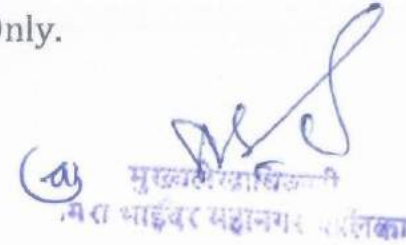 Only.
मुख्यलेखाधिकारी
मिरा भाईंदर महानगरपालिका